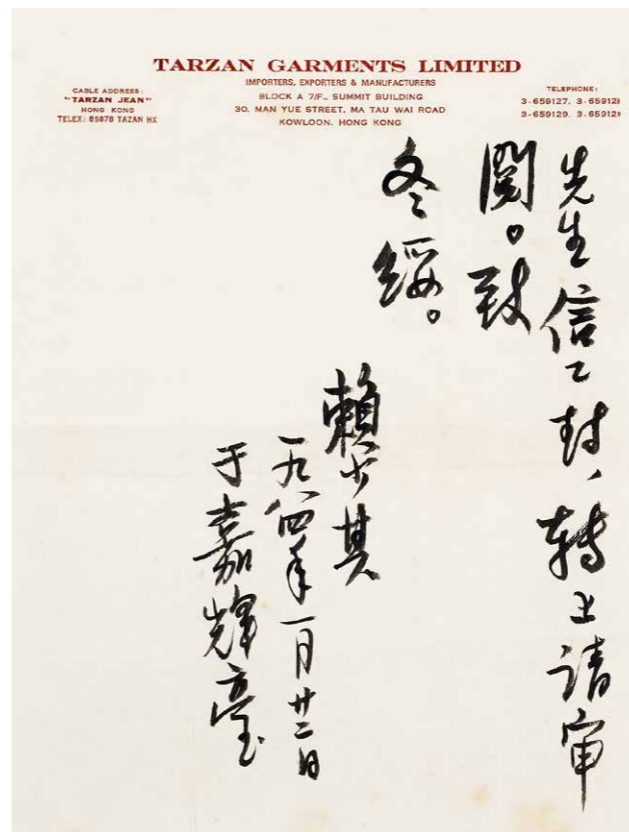 TARZAN GARMENTS LIMITED
IMPORTERS, EXPORTERS & MANUFACTURERS
BLOCK A 7/F., SUMMIT BUILDING
30, MAN YUE STREET, MA TAU WAI ROAD
KOWLOON, HONG KONG
CABLE ADDRESS:
"TARZAN JEAN"
HONG KONG
TELEX: 85878 TAZAN HX
TELEPHONE:
3-659127, 3-659128
3-659129,
先生信二封、轉上請审
閱。致
冬綏。
賴少其
一九八四年一月廿二日
于嘉輝臺